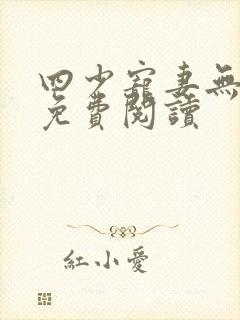 四少寵妻無
免費閱讀
紅小愛